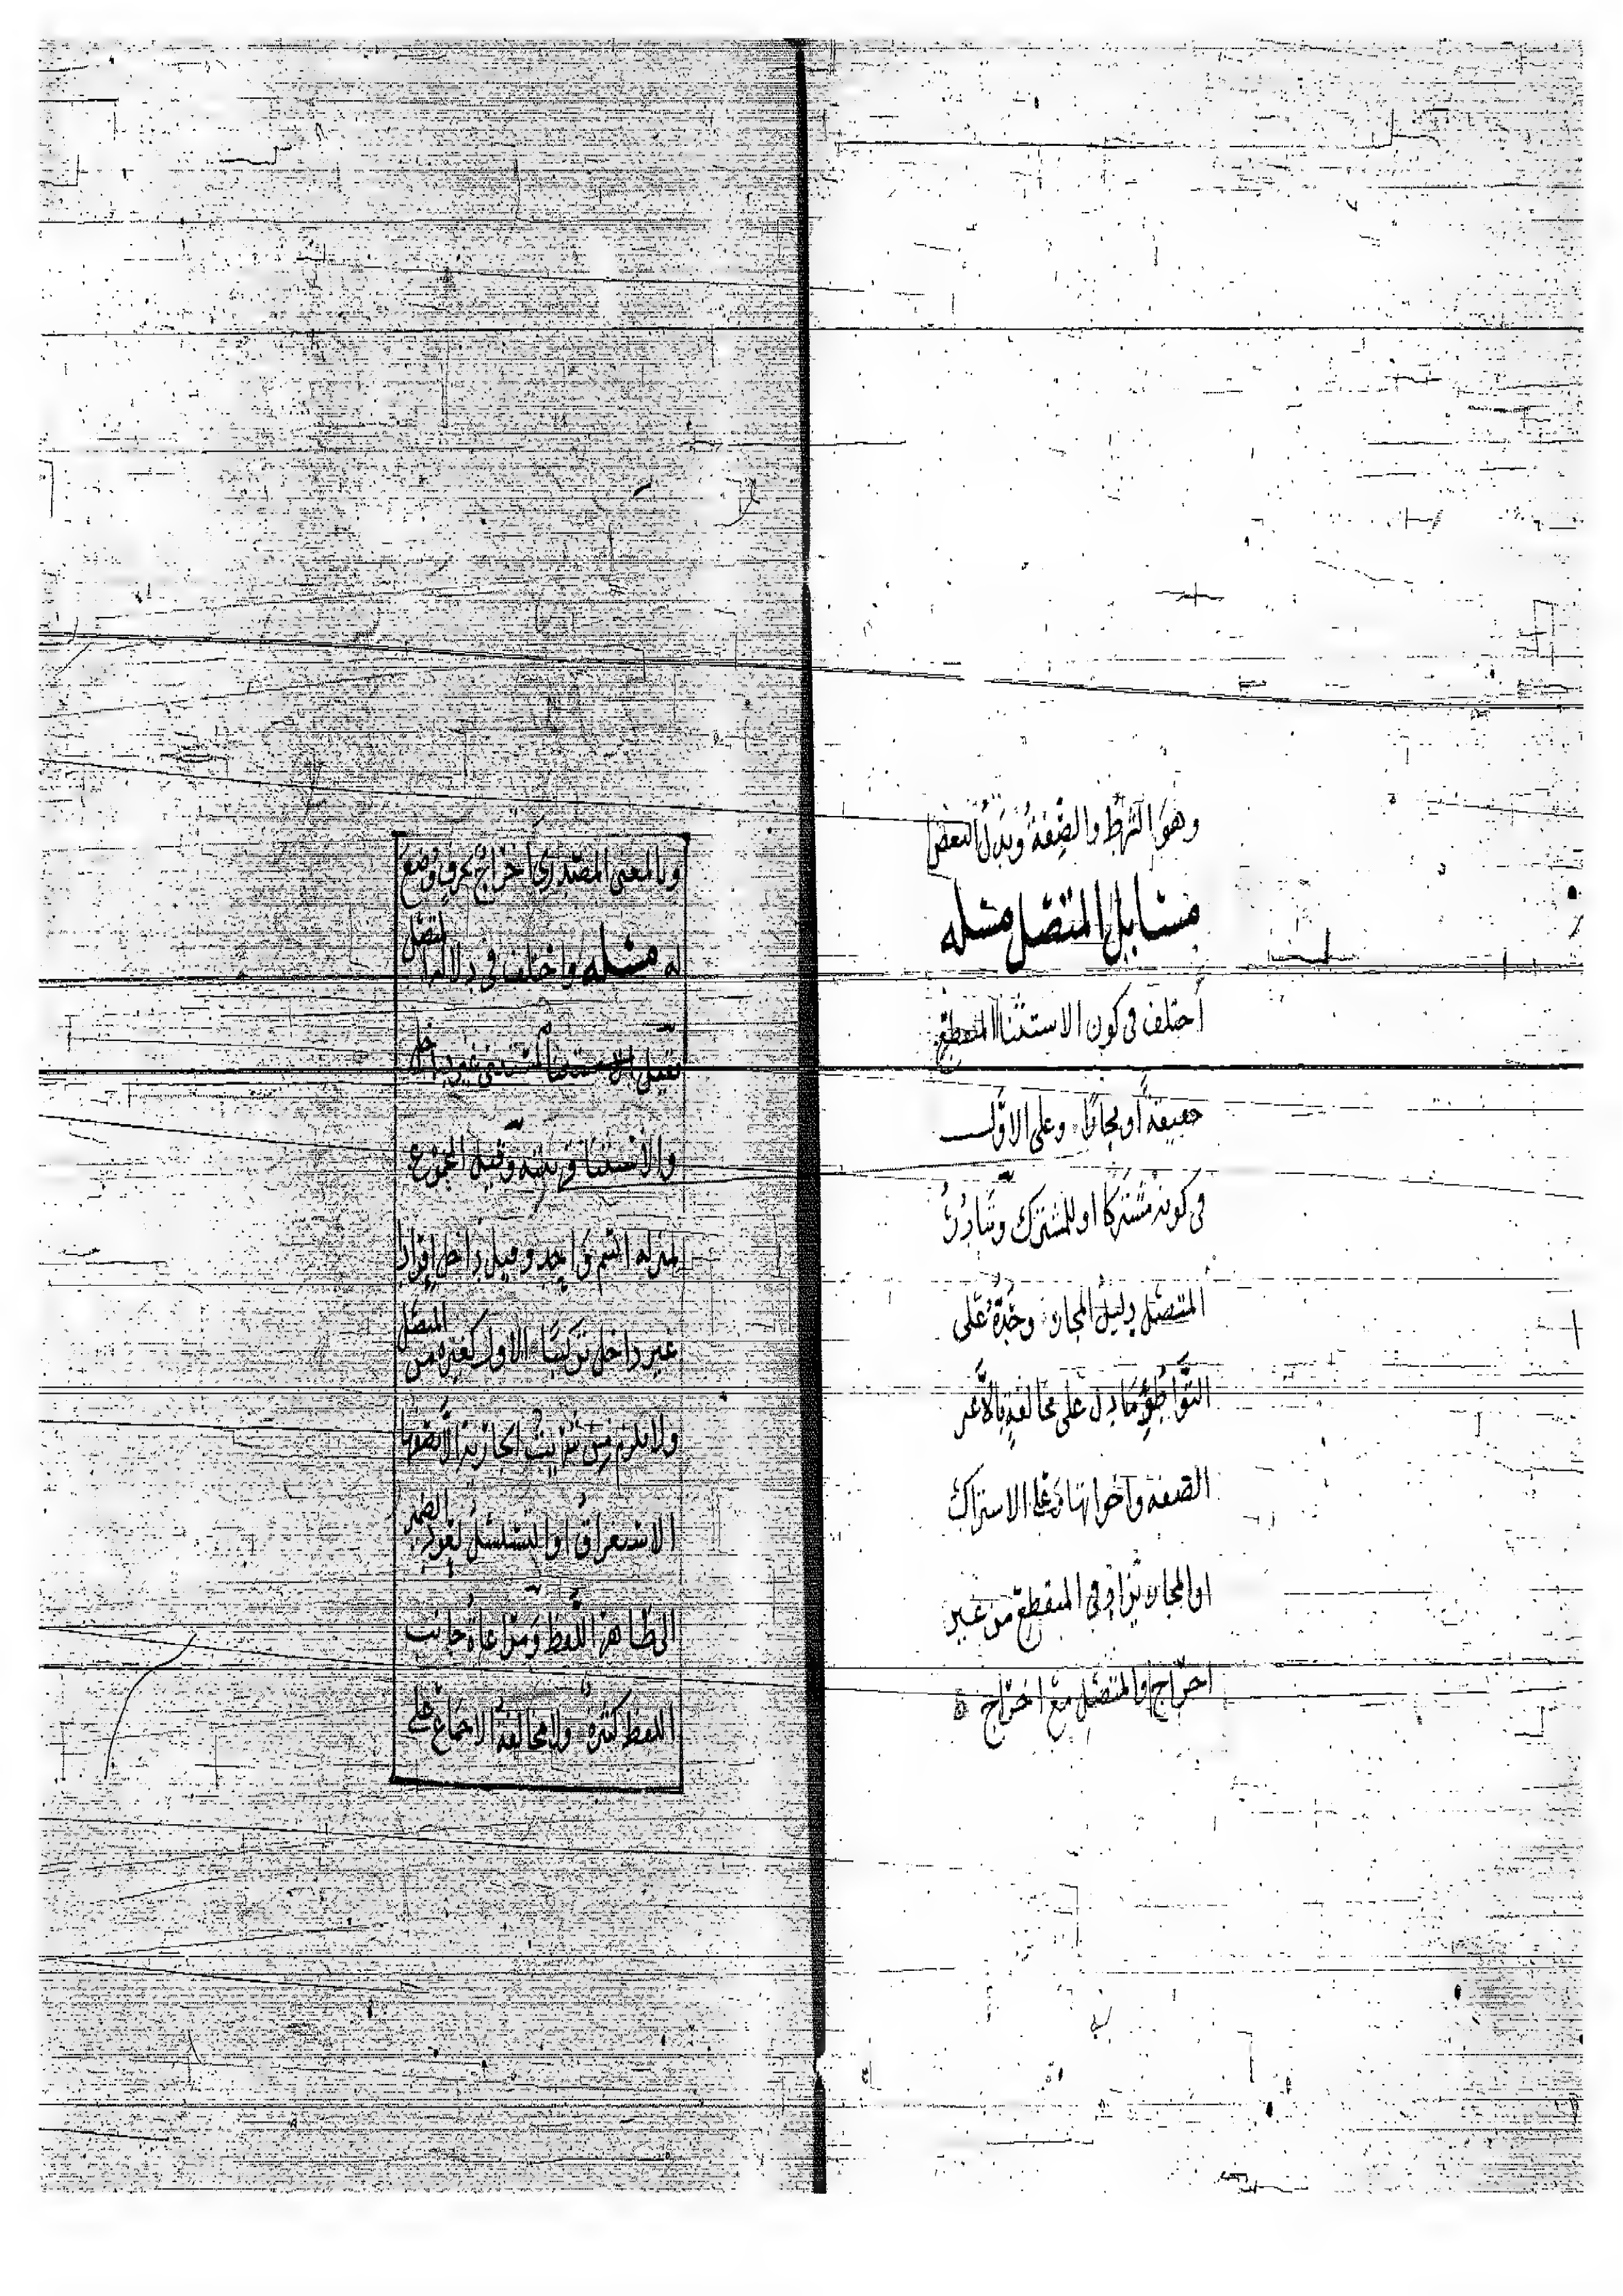 وهو الشرط والصفة وبدل البعض
مسايل المتصل مسله
اختلف في كون الاستثنا المنقطع
حقيقة او مجازا وعلى الاول
في كونه مشتركا او للمشترك وتبادر
المتصل دليل المجاز وحده على
التواطؤ ما دل على مخالفة بالا غير
الصفه واخواتها وعلى الاشتراك
او المجاز تزاد في المنقطع من غير
اخراج والمتصل مع اخراج ه
وبالمعنى المصدري اخراج بحرف وضع
له مسله واختلف في دلاله المتصل
فقيل
والاستثنا قرينته وقيل المجموع
بمنزله اسم واحد وقيل داخل افرادا
غير داخل تركيبا الاول كغيره من المتصل
ولا يلزم من
الاستغراق او التسلسل لعود الضمير
الى ظاهر اللفظ ومراعاة جانب
اللفظ كثيره ولا مخالفة الاجماع على